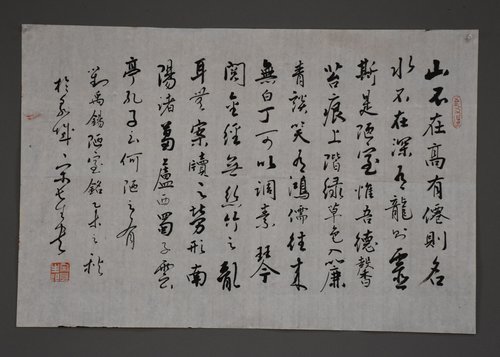 山不在高有僊則名
水不在深有龍則靈
斯是陋室惟吾德馨
苔痕上階綠草色入簾
青談笑有鴻儒往來
無白丁可以調素琴
閱金經無絲竹之亂
耳無案牘之勞形南
陽諸葛廬西蜀子雲
亭孔子云何陋之有
劉禹錫陋室銘乙未之秋
於京城宋